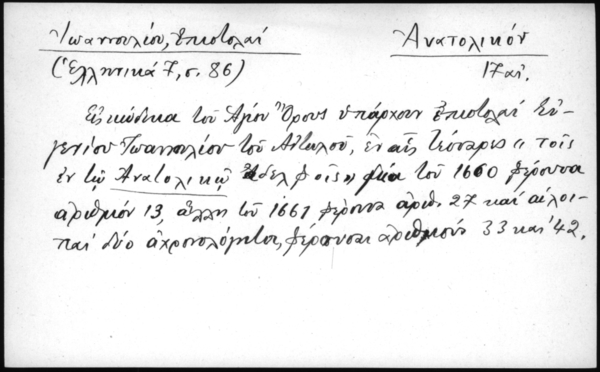 Ἰωαννουλίου, Ἐπιστολαί
Ἀνατολικόν
(Ἑλληνικά 7, σ. 86)
17 αἰ.
Εἰς κώδικα τοῦ Ἁγίου Ὄρους ὑπάρχουν ἐπιστολαί Εὐ-
γενίου Ἰωαννουλίου τοῦ Αἰτωλοῦ, ἐν αἷς τέσσαρες "τοῖς
ἐν τῷ Ἀνατολικῷ ἀδελφοῖς" μία τοῦ 1660 φέρουσα
ἀριθμόν 13, ἄλλη τοῦ 1661 φέρουσα ἀριθ. 27 καί αἱ λοι-
παί δύο ἀχρονολόγητοι, φέρουσαι ἀριθμούς 33 καί 42.